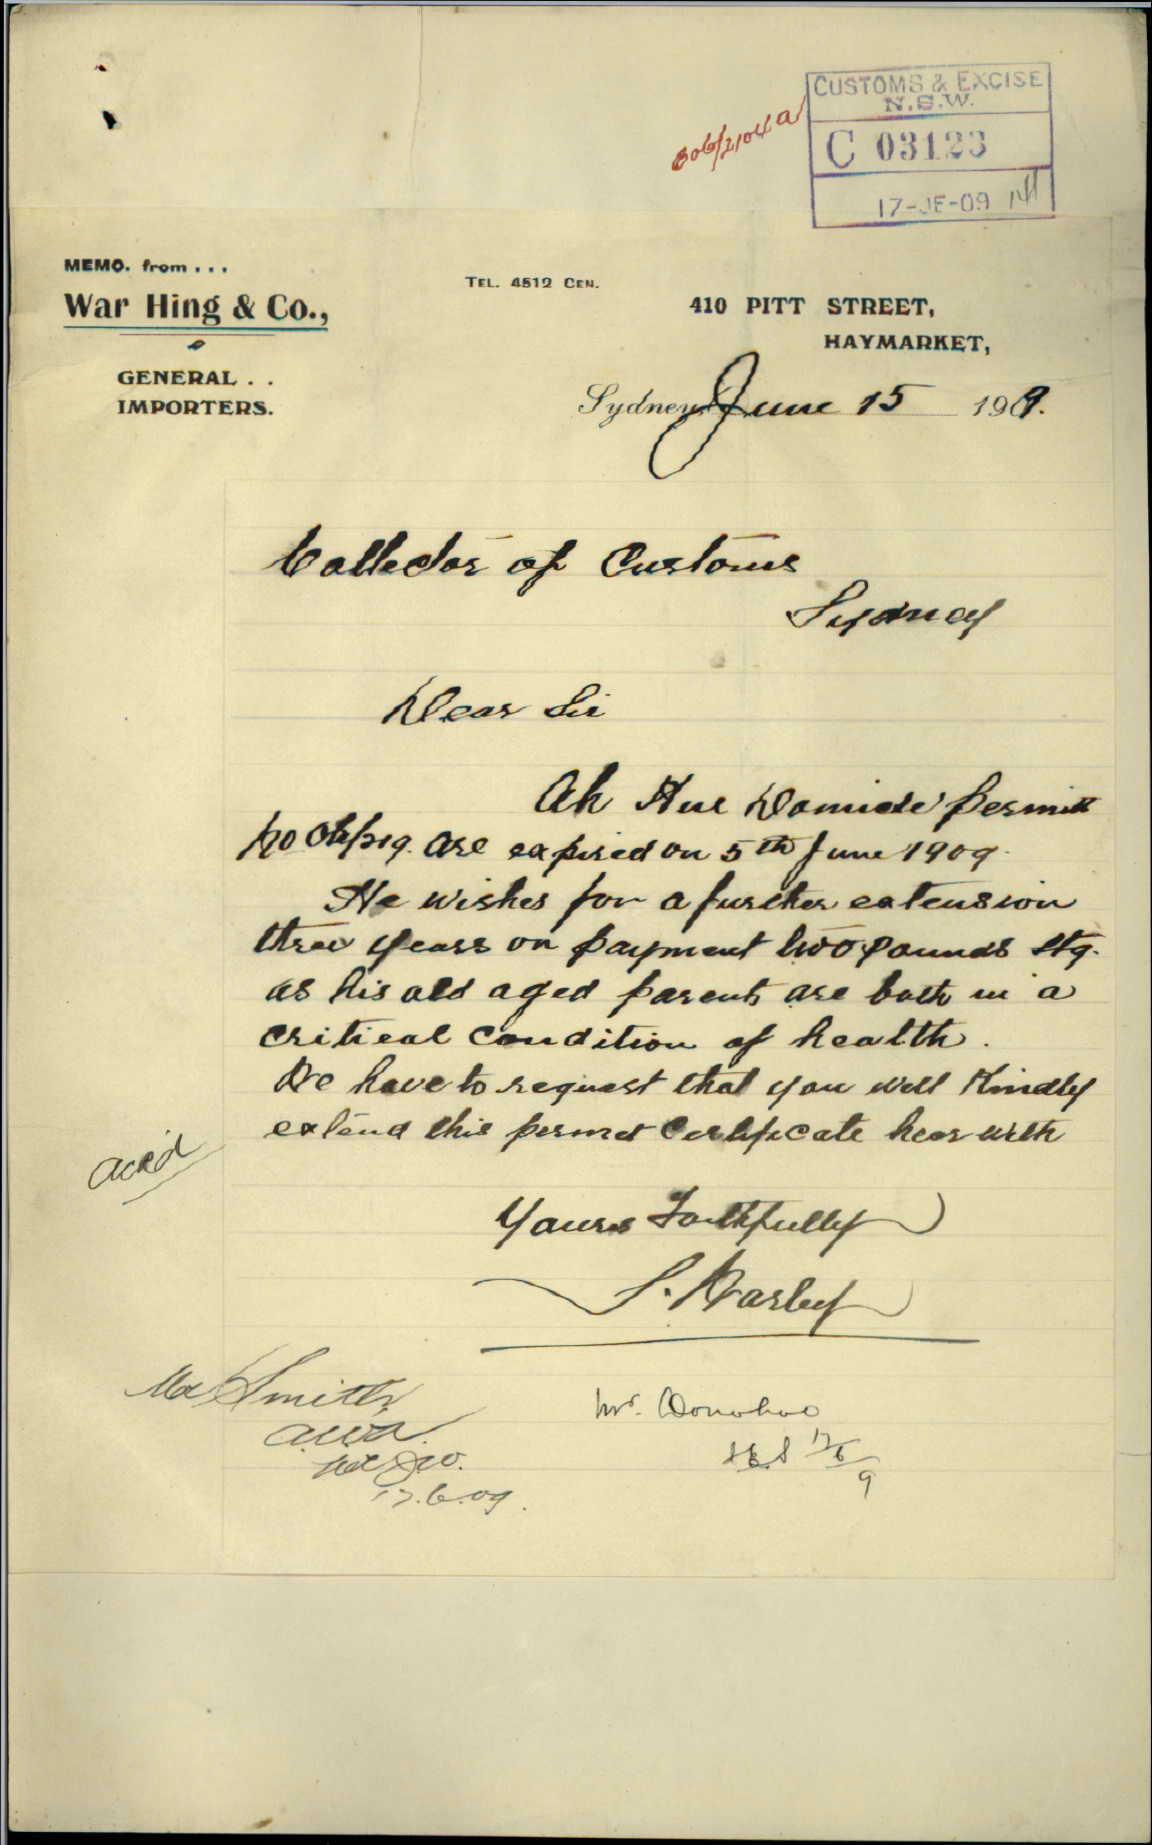 CUSTOMS & EXCISE
N.S.W.
C 03123
17-JE-09
MEMO. from . . .
War Hing & Co.,
GENERAL . .
IMPORTERS.
TEL. 4512 CEN.
410 PITT STREET,
HAYMARKET,
Sydney June 15 1909.
Collector of Customs
Sydney
Dear Sir
Ah Hue Domicile permitt
No are expired on 5th June 1909.
He wishes for a further extension
three years on payment two pounds stg.
as his old aged parents are both in a
critical condition of health.
We have to request that you will Kindly
extend this permet Certificate hear with
ackd
Yours Faithfully
Mr Smith
17.6.09.
Mr. Donohoe
17/6/9